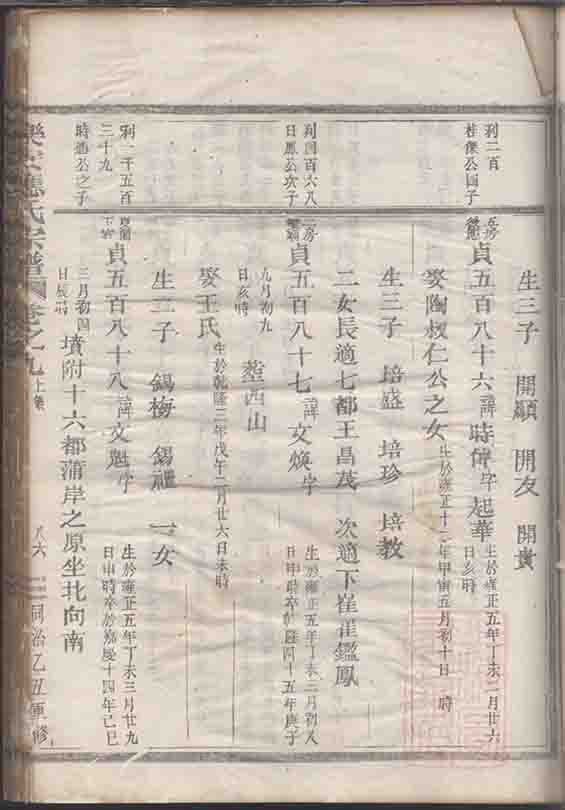 生三子 開顯 開友 開貴
利二百
桂傑公四子
五房
貞五百八十六 諱時偉字起華 生於雍正五年丁未二月廿六
日亥時
娶陶叔仁公之女 生於雍正十二年甲寅五月初十日 時
生三子 培盛 培珍 培教
二女長適七都王昌茂 次適下崔崔鑑鳳
利四百六八
日鳳公次子
二房
貞五百八十七 諱文煥字 生於雍正五年丁未三月初八
日申時卒乾隆四十五年庚子
九月初九
日亥時 塟西山
娶王氏 生於乾隆三年戊午二月廿六日未時
生二子 錫梅 錫 一女
利一千五百
三十九
時 公之子
貞五百八十八 諱文魁字 生於雍正五年丁未三月廿九
日申時卒於嘉慶十四年己巳
三月初四
日辰時 墳附十六都蒲岸之原坐北向南
氏宗譜 卷之九 上集 八六 同治乙丑重修